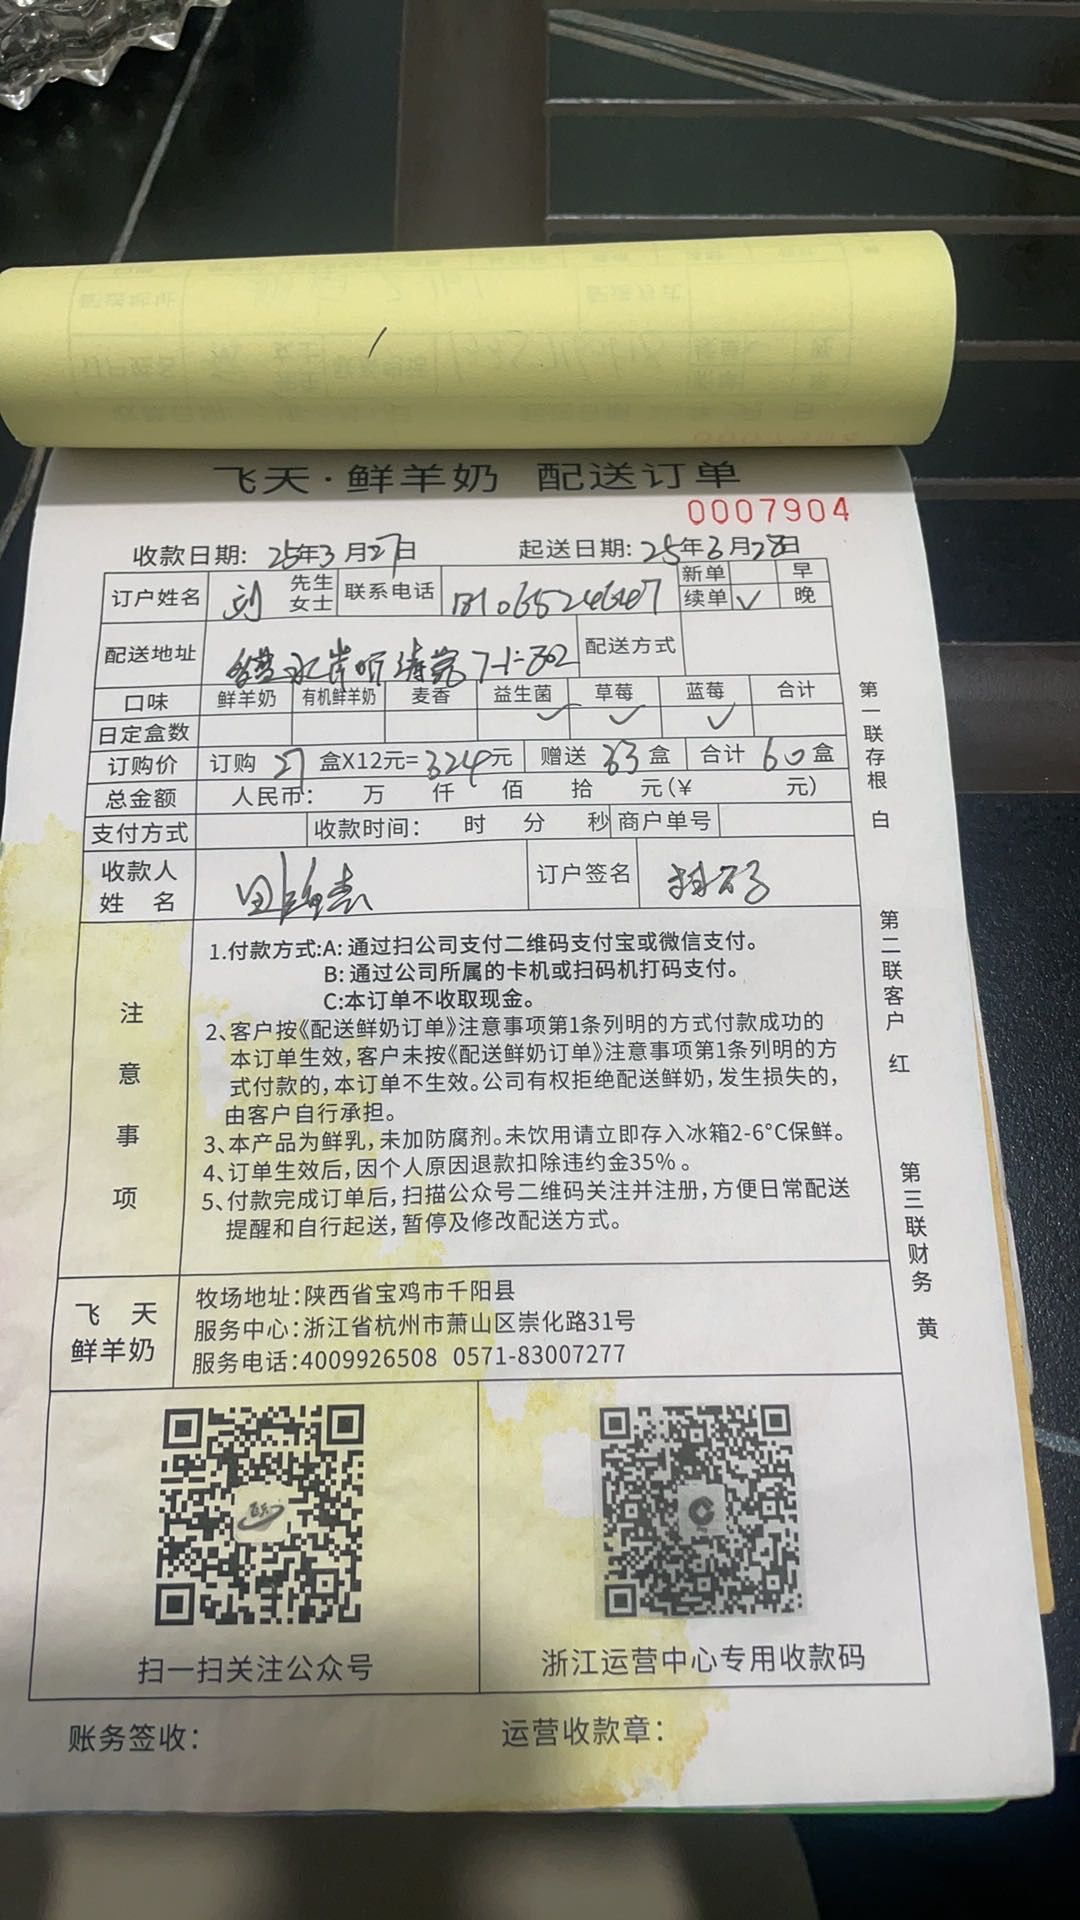 飞天·鲜羊奶 配送订单
0007904
收款日期: 25年3月27日 起送日期: 25年3月28日
订户姓名 刘 先生 女士 联系电话 新单 续单 ✓ 早 晚
配送地址 水岸听涛苑7-1-802 配送方式
口味 鲜羊奶 有机鲜羊奶 麦香 益生菌 草莓 蓝莓 合计
日定盒数 ✓ ✓ ✓
订购价 订购 27 盒X12元=324元 赠送 33 盒 合计 60 盒
总金额 人民币: 万 仟 佰 拾 元(¥ 元)
支付方式 收款时间: 时 分 秒 商户单号
收款人姓名 订户签名 扫码
注意事项
1.付款方式:A: 通过扫公司支付二维码支付宝或微信支付。
B: 通过公司所属的卡机或扫码机打码支付。
C:本订单不收取现金。
2、客户按《配送鲜奶订单》注意事项第1条列明的方式付款成功的
本订单生效,客户未按《配送鲜奶订单》注意事项第1条列明的方
式付款的,本订单不生效。公司有权拒绝配送鲜奶,发生损失的,
由客户自行承担。
3、本产品为鲜乳,未加防腐剂。未饮用请立即存入冰箱2-6°C保鲜。
4、订单生效后,因个人原因退款扣除违约金35%。
5、付款完成订单后,扫描公众号二维码关注并注册,方便日常配送
提醒和自行起送,暂停及修改配送方式。
飞天
鲜羊奶
牧场地址:陕西省宝鸡市千阳县
服务中心:浙江省杭州市萧山区崇化路31号
服务电话:4009926508 0571-83007277
扫一扫关注公众号
浙江运营中心专用收款码
账务签收: 运营收款章:
第一联存根 白
第二联客户 红
第三联财务 黄